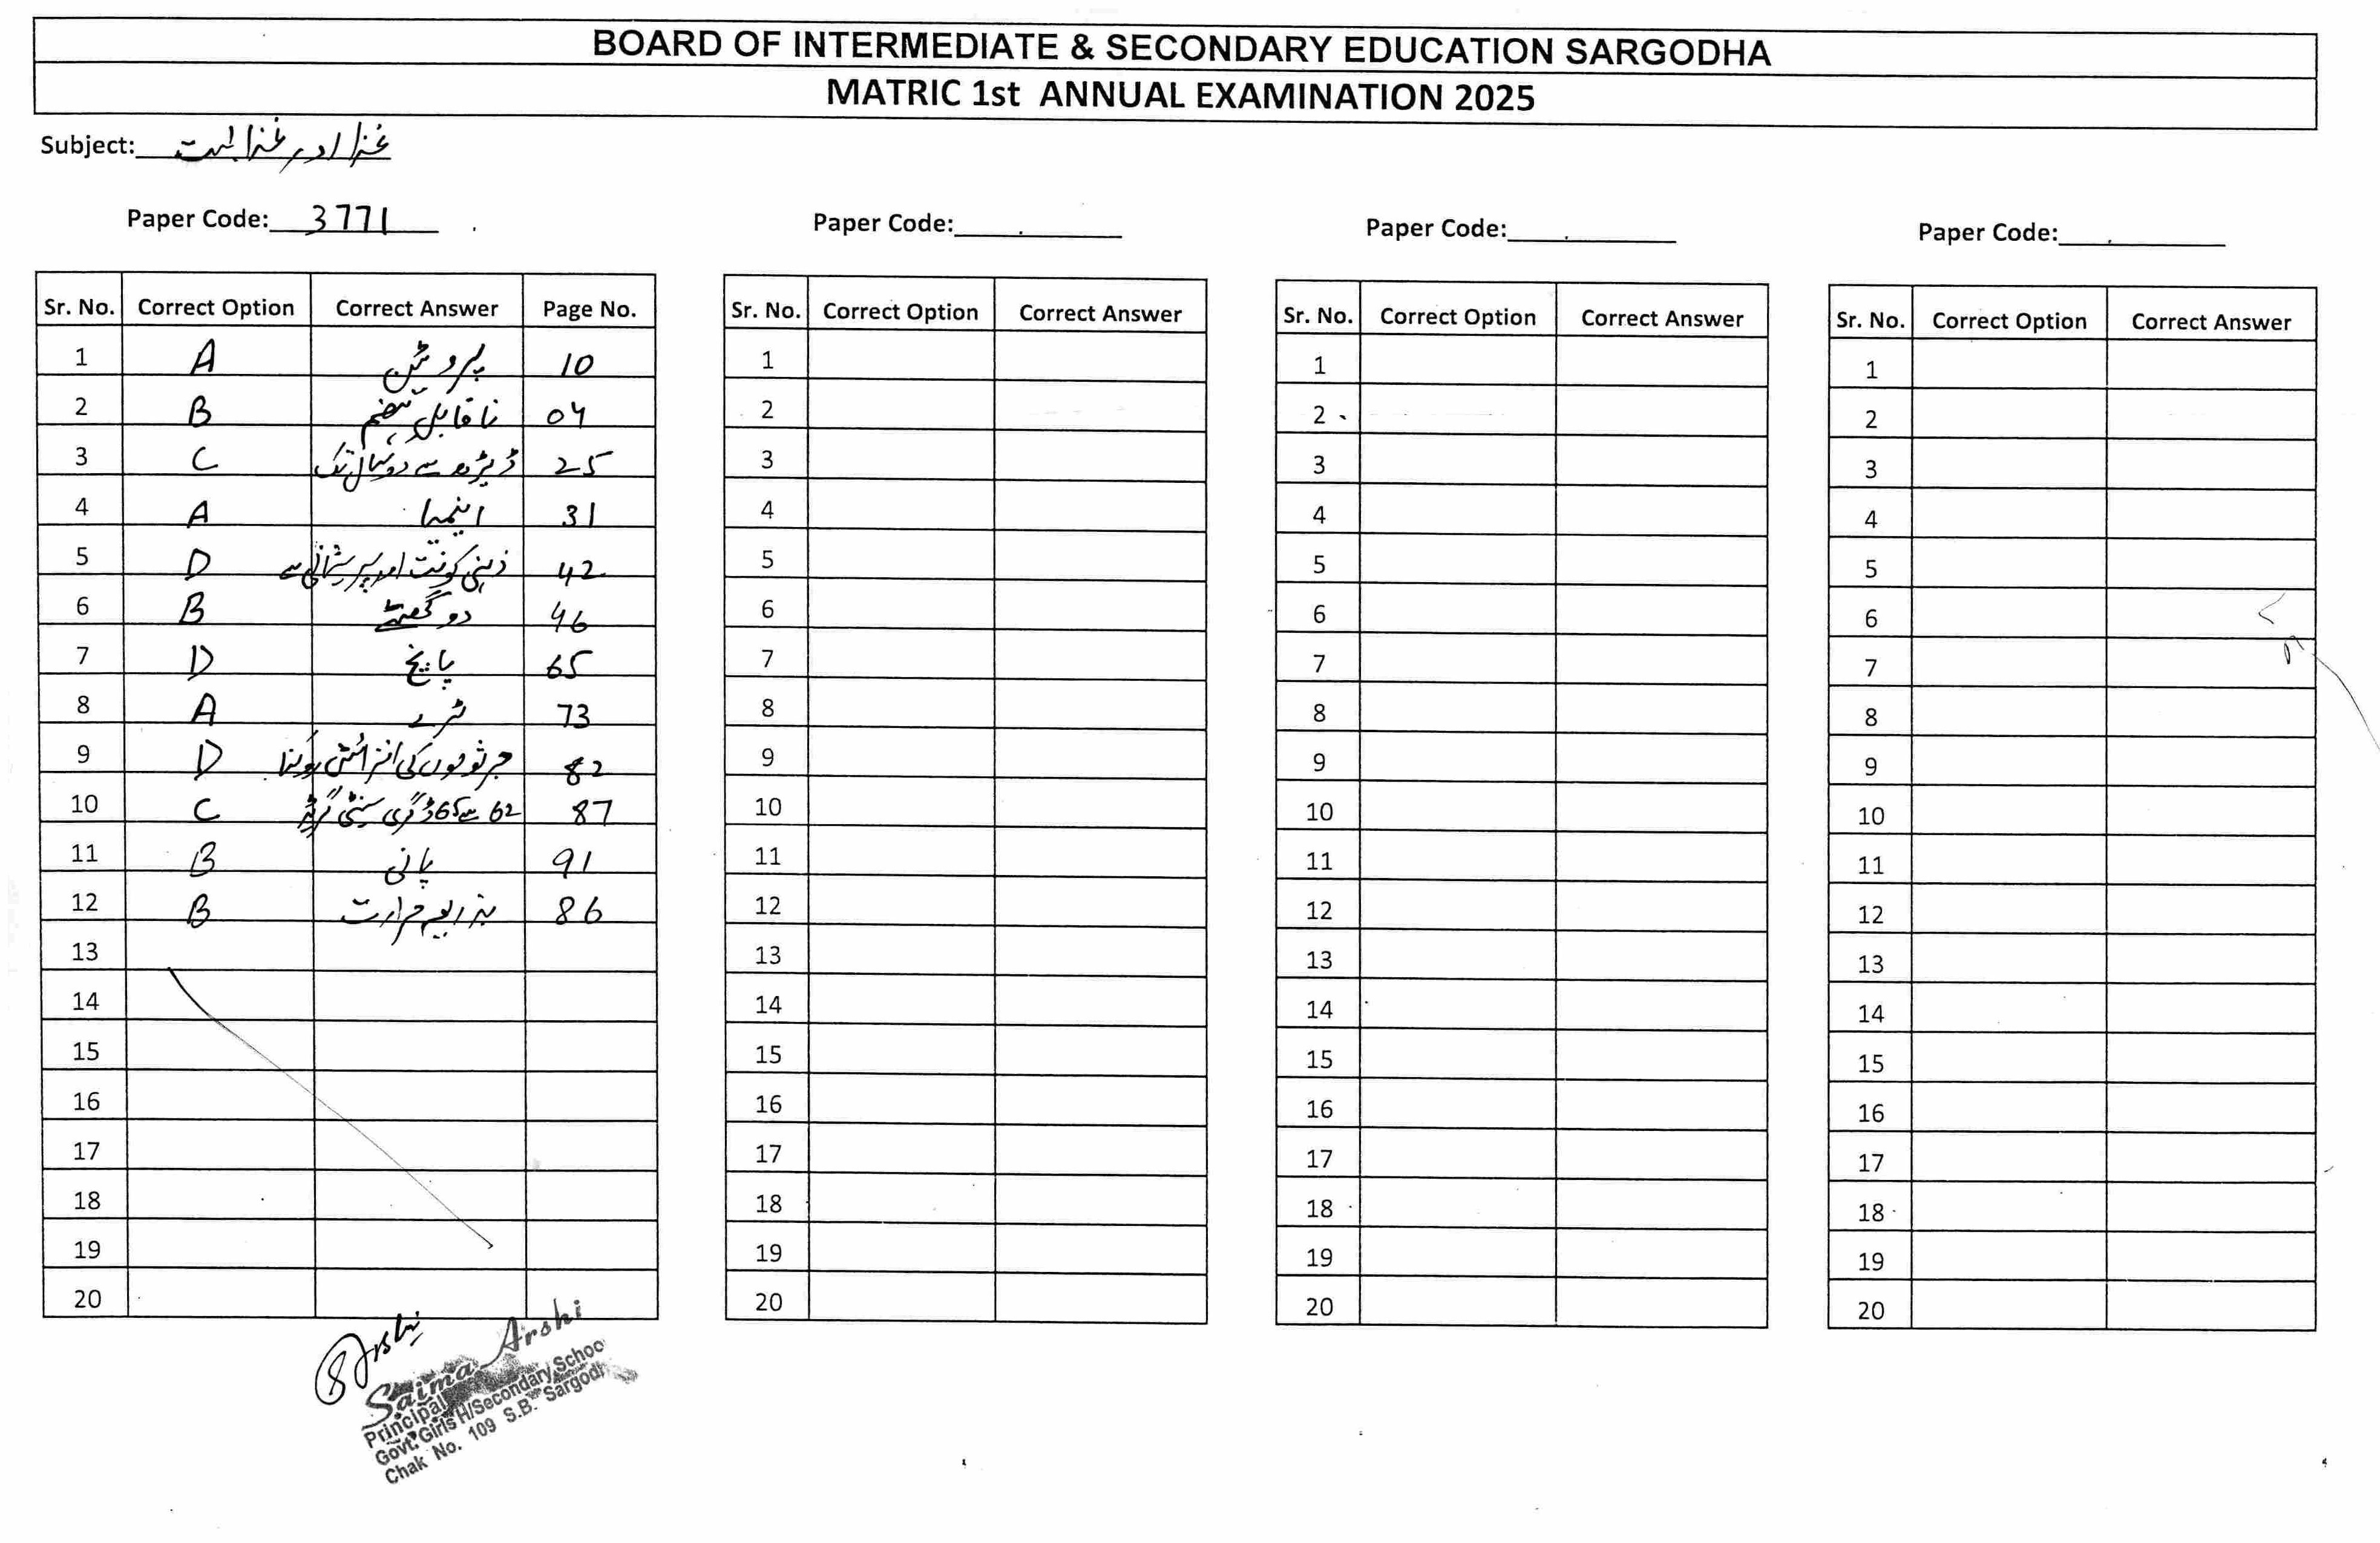 BOARD OF INTERMEDIATE & SECONDARY EDUCATION SARGODHA
MATRIC 1st ANNUAL EXAMINATION 2025
Subject: غذا اور غذائیت
Paper Code: 3771
Sr. No. Correct Option Correct Answer Page No.
1 A پروٹین 10
2 B ناقابل ہضم 04
3 C ڈیڑھ سے دو سال تک 25
4 A اینیمیا 31
5 D ذہنی کوفت اور پریشانی سے 42
6 B دو گھنٹے 46
7 D پانچ 65
8 A ٹرے 73
9 D جرثوموں کی افزائش روکنا 82
10 C 62 سے 65 ڈگری سینٹی گریڈ 87
11 B پانی 91
12 B بذریعہ حرارت 86
13
14
15
16
17
18
19
20
Paper Code:
Sr. No. Correct Option Correct Answer
1
2
3
4
5
6
7
8
9
10
11
12
13
14
15
16
17
18
19
20
Paper Code:
Sr. No. Correct Option Correct Answer
1
2
3
4
5
6
7
8
9
10
11
12
13
14
15
16
17
18
19
20
Paper Code:
Sr. No. Correct Option Correct Answer
1
2
3
4
5
6
7
8
9
10
11
12
13
14
15
16
17
18
19
20
Saima Arshi
Principal
Govt. Girls H/Secondary Schoo
Chak No. 109 S.B. Sargod